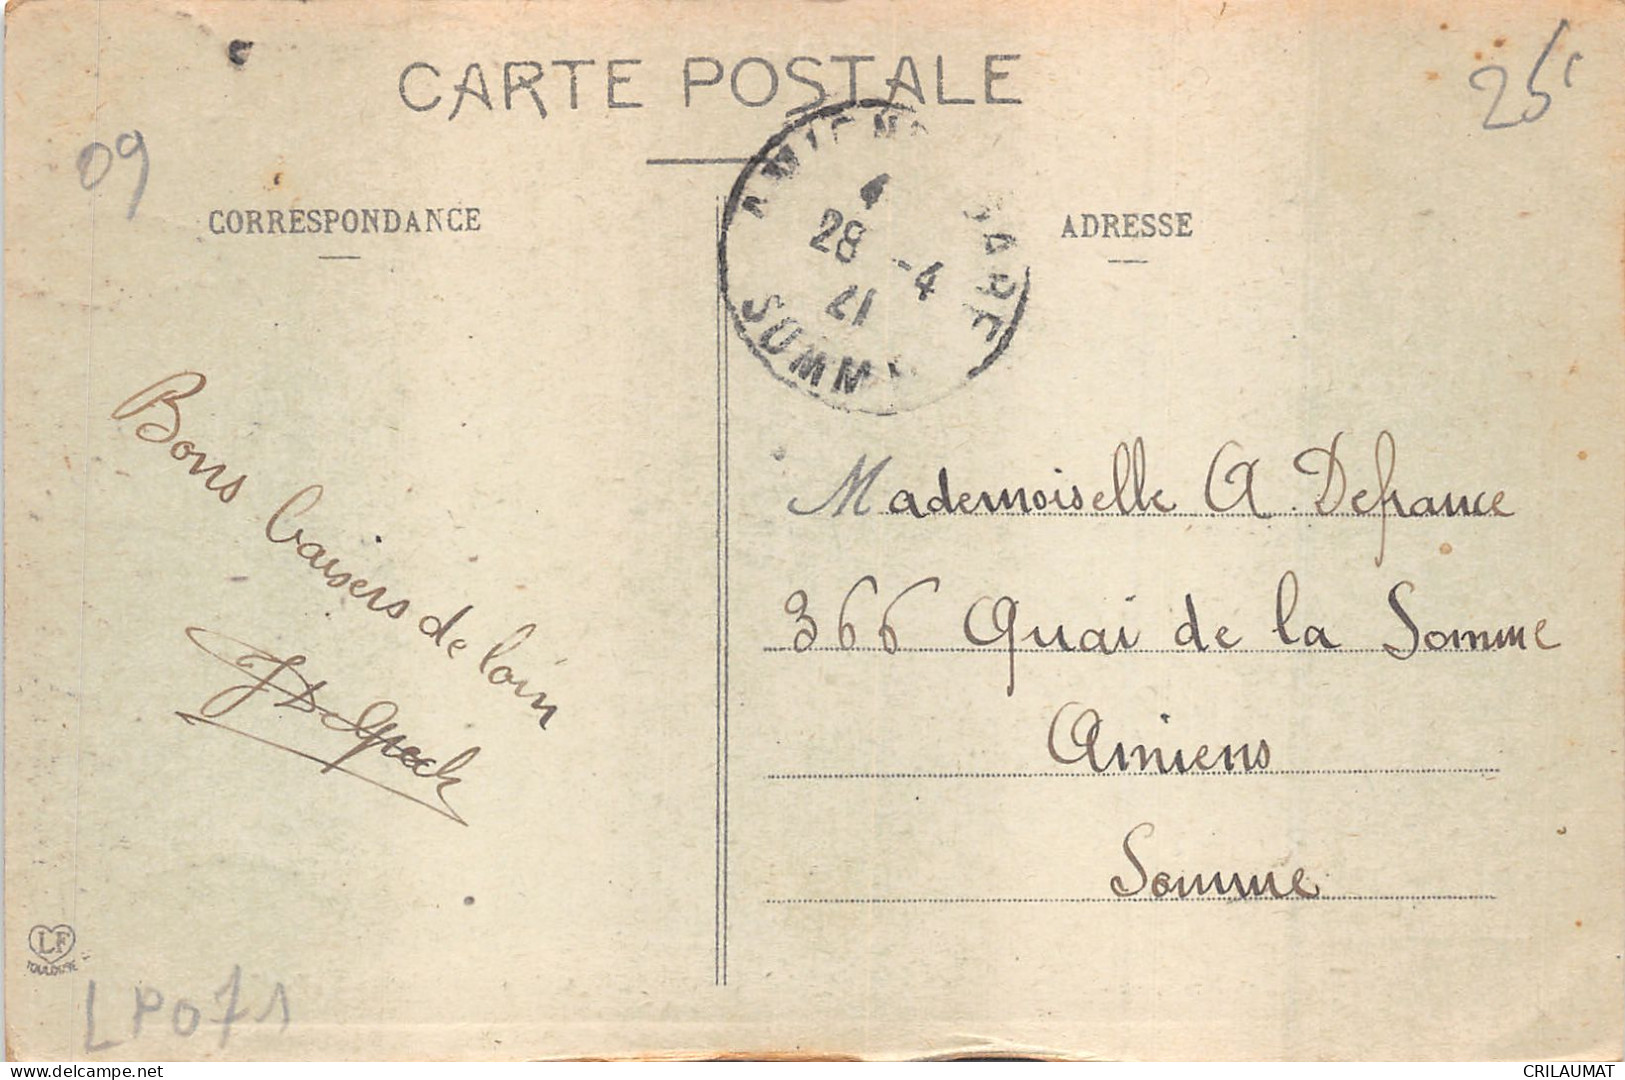 CARTE POSTALE
25c
09
CORRESPONDANCE
ADRESSE
AMIENS GARE
4
28 -4
21
SOMME
Bons baisers de loin
Mademoiselle A. Defrance
366 Quai de la Somme
Amiens
Somme
LF
TOULOUSE
LP071
CRILAUMAT